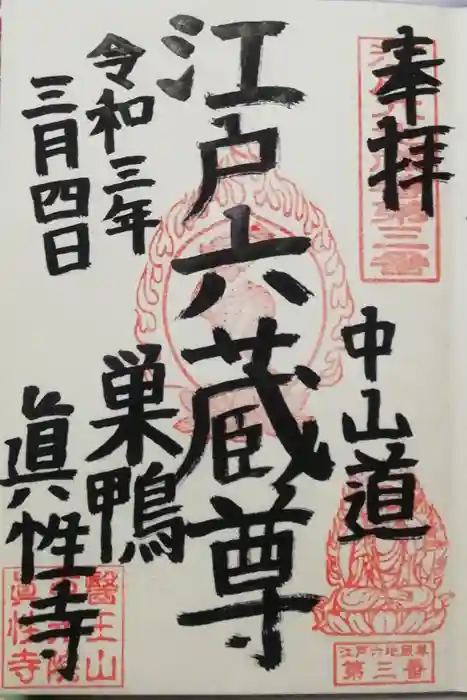 奉拝
中山道
江戸六蔵尊
令和三年
三月四日
巣鴨
眞性寺
江戸六地蔵尊
第三番
醫王山
眞性寺